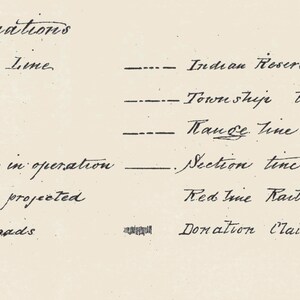 ations
Line
Indian Reser
Township
Range line
in operation
Section line
projected
Red line Rail
ads
Donation Clai